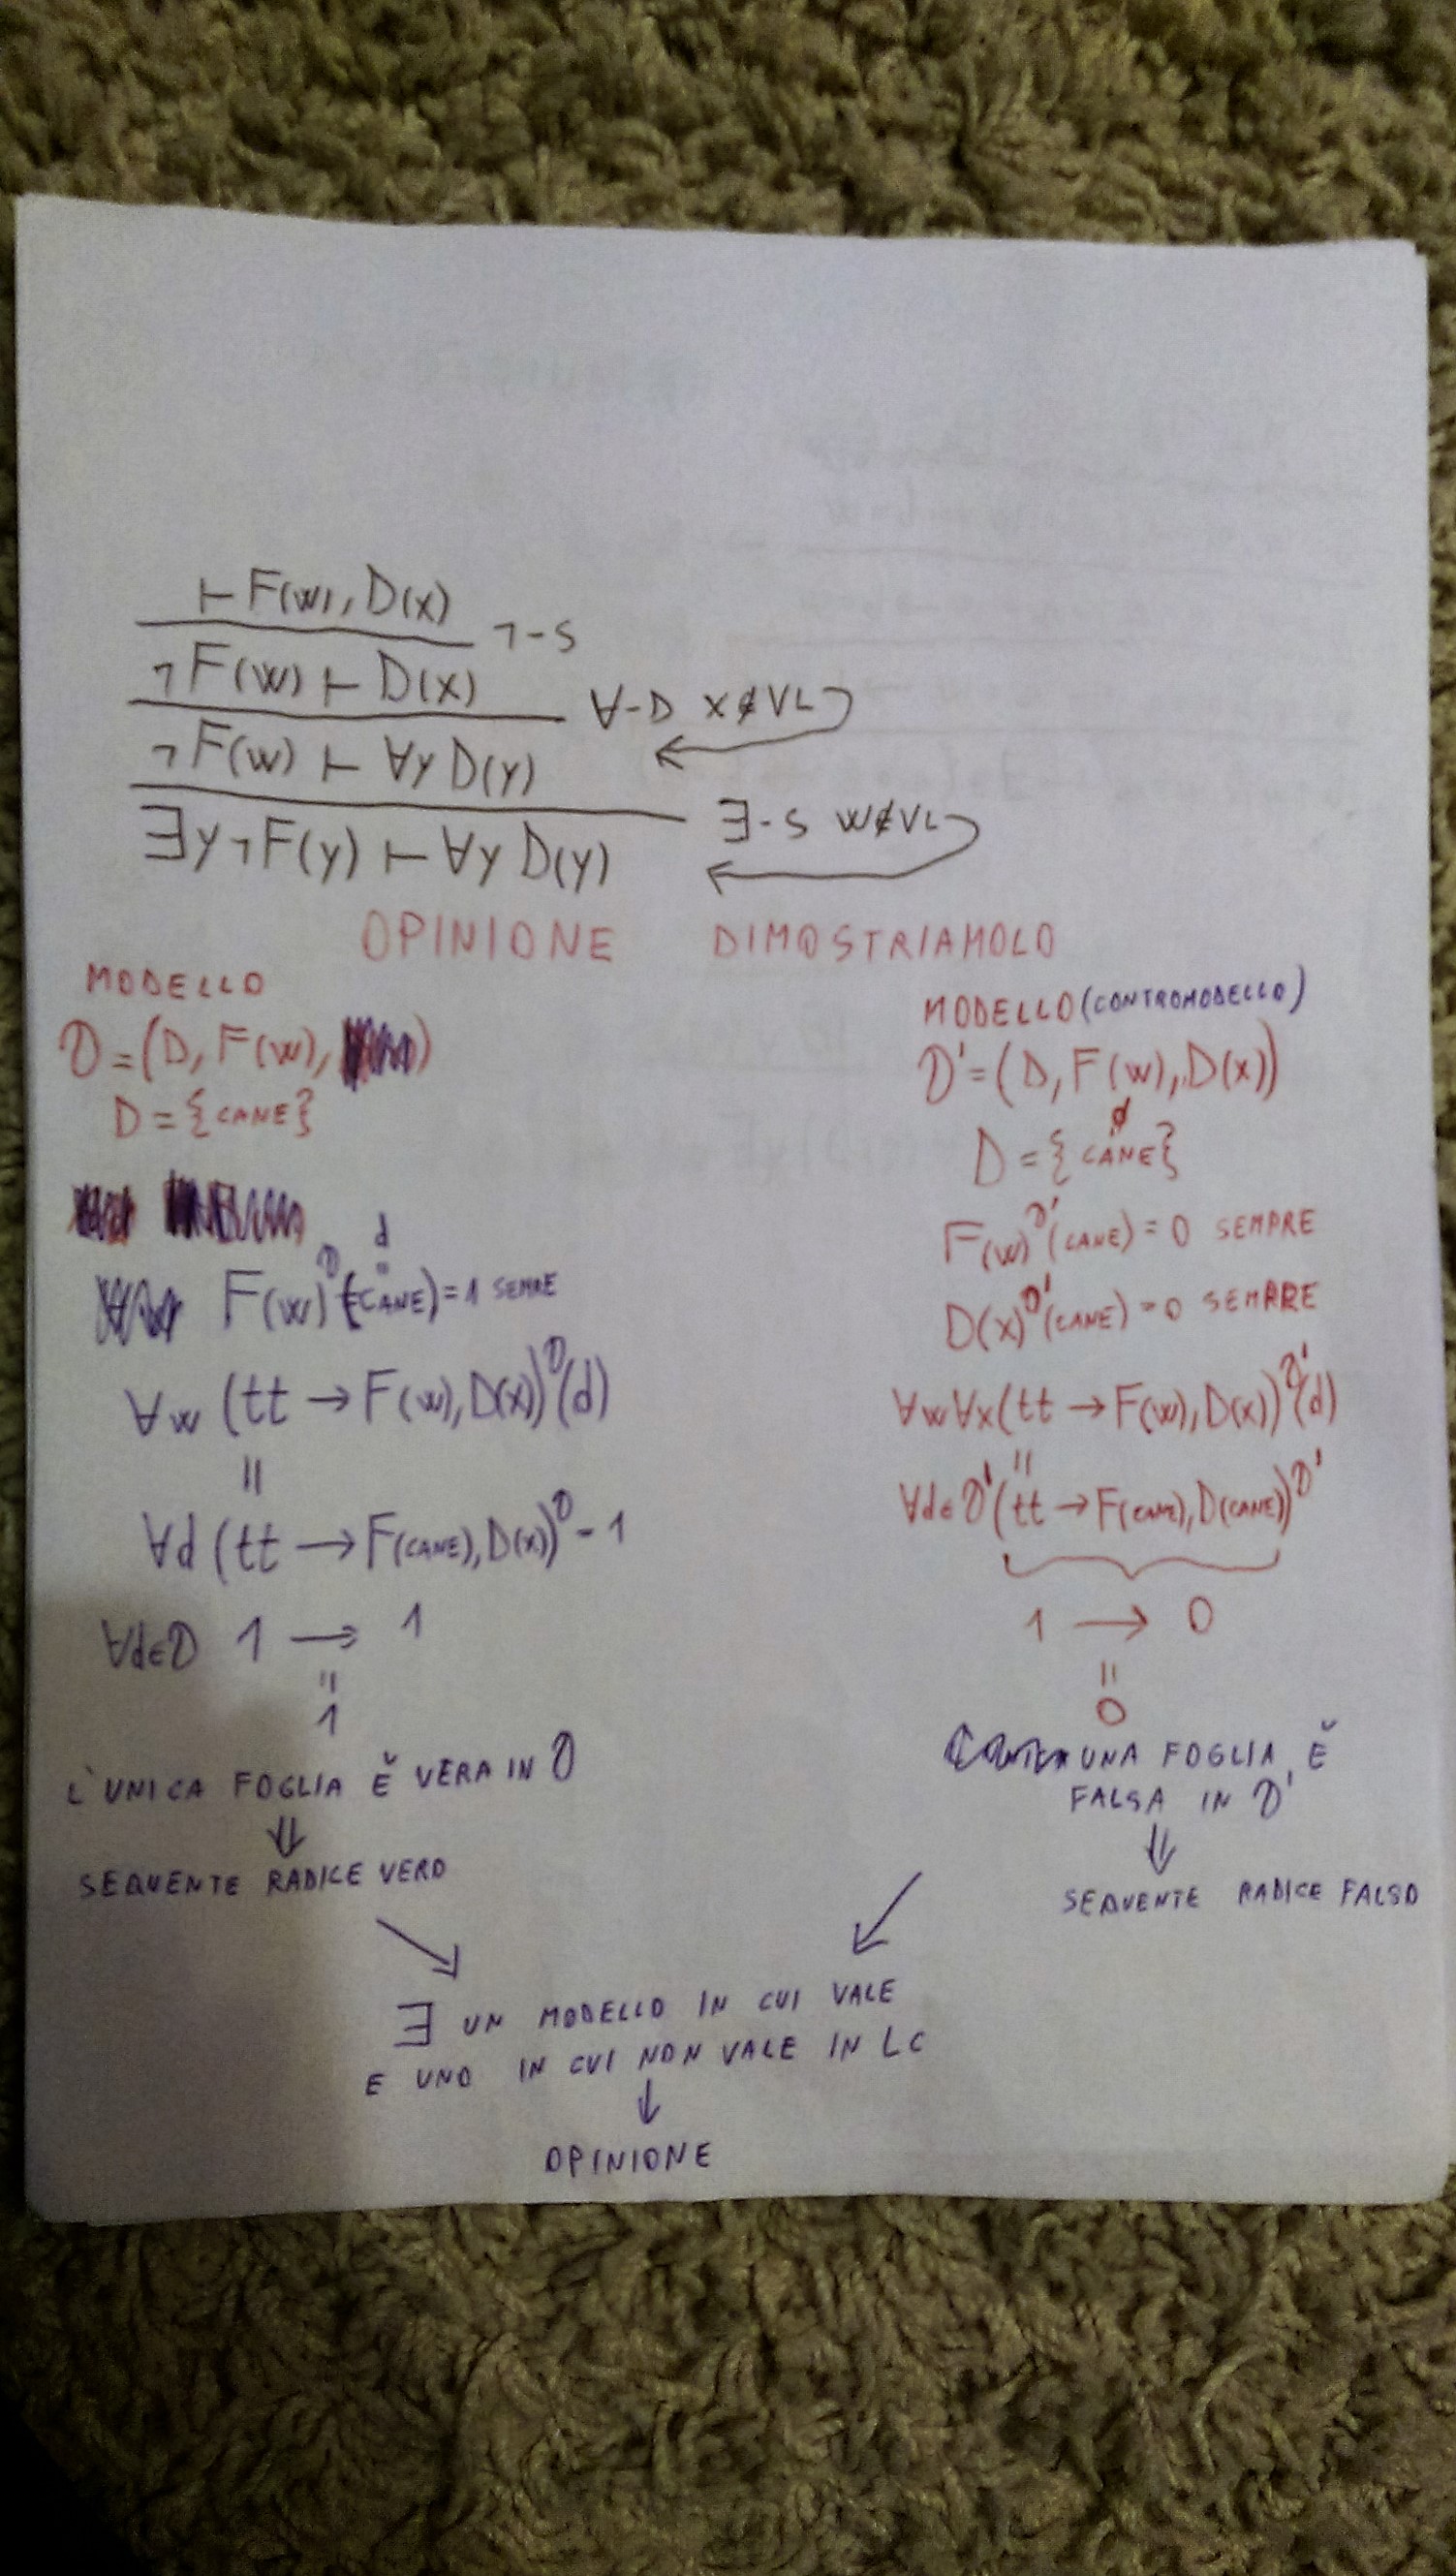 ⊢ F(w), D(x)
¬-S
¬F(w) ⊢ D(x)
∀-D x∉VL
¬F(w) ⊢ ∀y D(y)
∃-S w∉VL
∃y¬F(y) ⊢ ∀y D(y)
OPINIONE DIMOSTRIAMOLO
MODELLO
D=(D, F(w), )
D={CANE}
d
"
F(w)^D(CANE)=1 SEMRE
∀w (tt → F(w), D(x))^D(d)
||
∀d (tt → F(CANE), D(x))^D - 1
∀d∈D 1 → 1
||
1
L'UNICA FOGLIA È VERA IN D
⇓
SEQUENTE RADICE VERO
MODELLO (CONTROMODELLO)
D'=(D, F(w), D(x))
D={CANE}
F(w)^D'(CANE)=0 SEMPRE
D(x)^D'(CANE)=0 SEMPRE
∀w∀x(tt → F(w), D(x))^D'(d)
||
∀d∈D'(tt → F(CANE), D(CANE))^D'
1 → 0
||
0
UNA FOGLIA È
FALSA IN D'
⇓
SEQUENTE RADICE FALSO
∃ UN MODELLO IN CUI VALE
E UNO IN CUI NON VALE IN LC
↓
OPINIONE